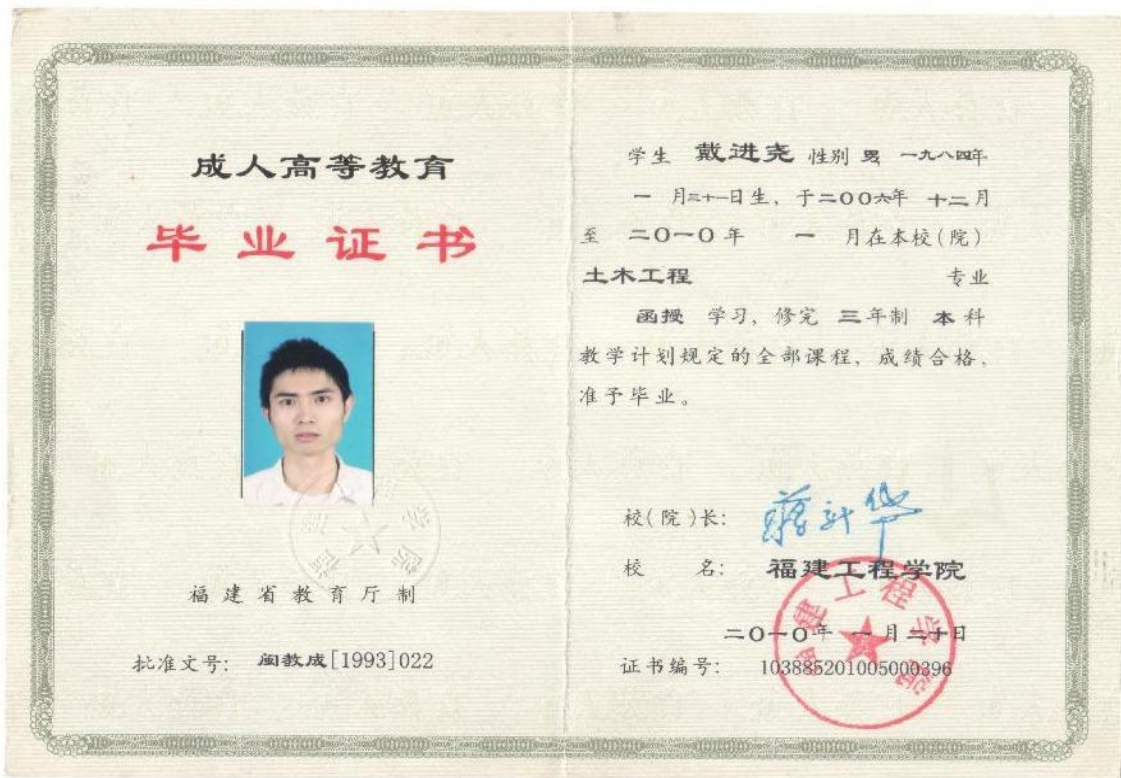 成人高等教育
毕业证书
福建省教育厅制
批准文号： 闽教成[1993]022
学生 戴进尧 性别 男 一九八四年
一 月二十一日生，于二〇〇六年 十二月
至 二〇一〇年 一 月在本校(院)
土木工程 专业
函授 学习，修完 三年制 本科
教学计划规定的全部课程，成绩合格，
准予毕业。
校(院)长：
校 名： 福建工程学院
二〇一〇年 一月二十日
证书编号： 103885201005000396
福建工程学院